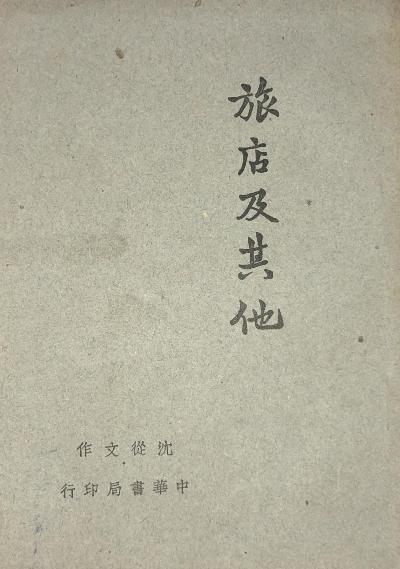 旅店及其他
沈從文作
中華書局印行